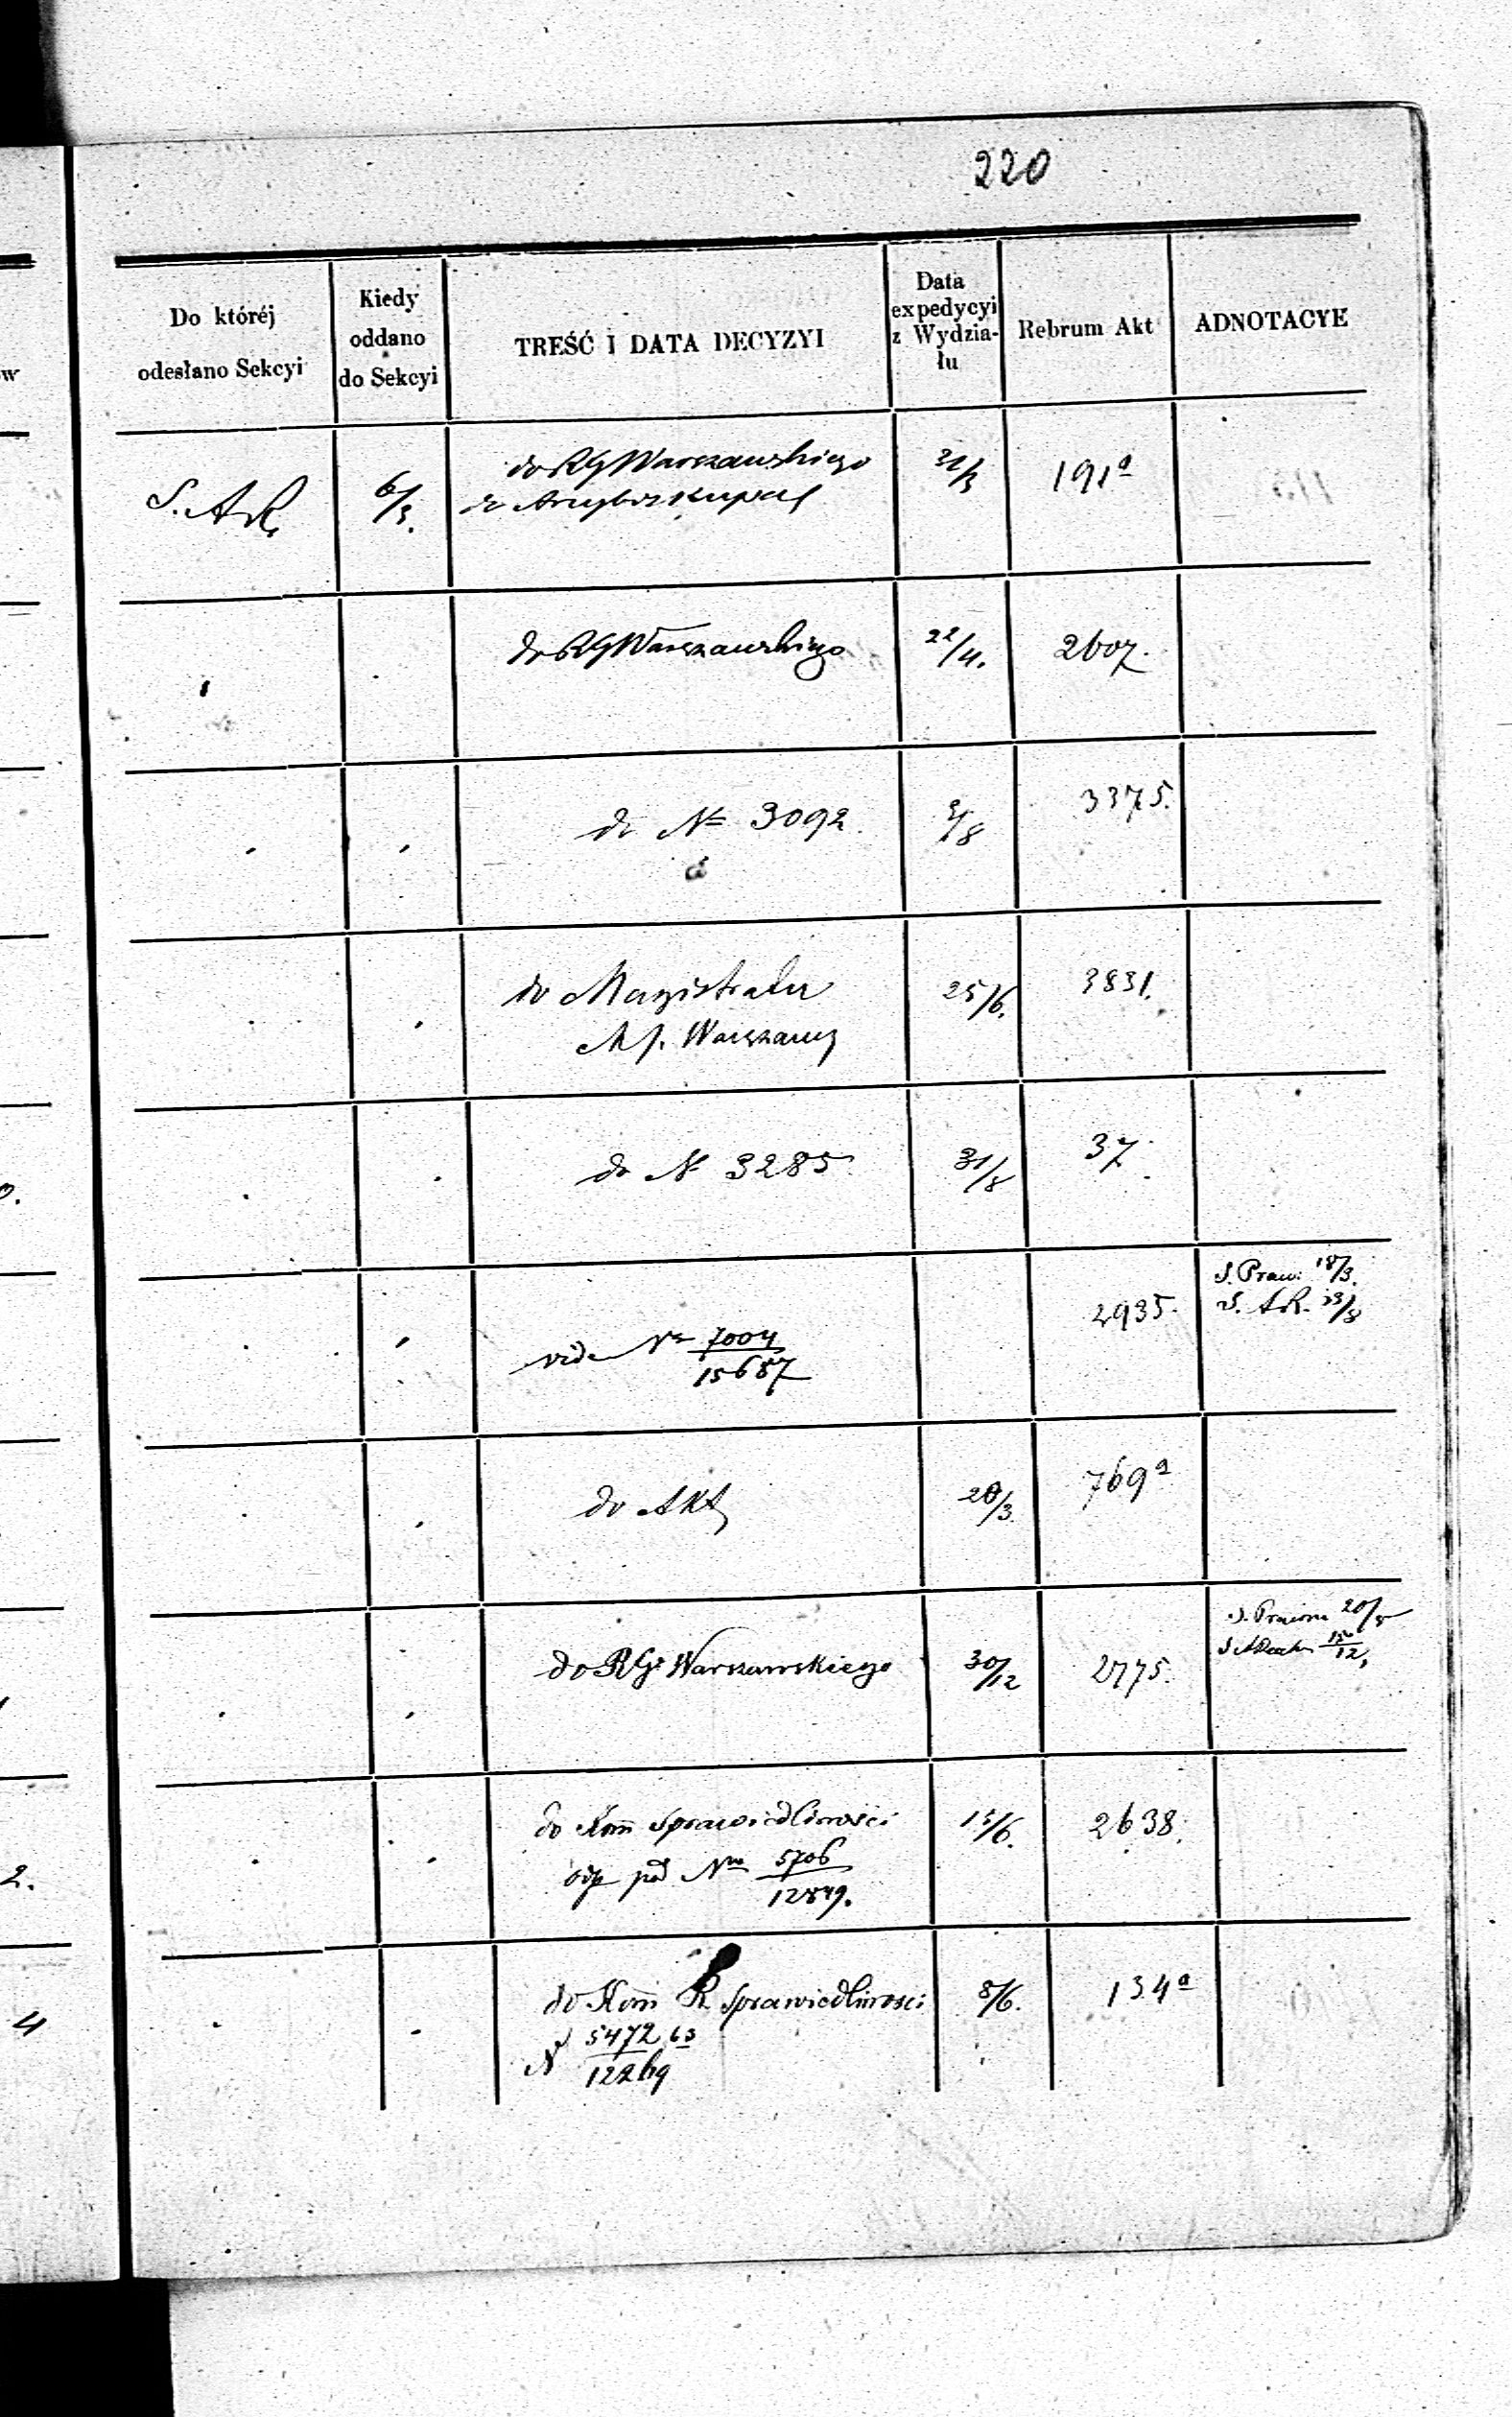 220
Do któréj
odesłano Sekcyi
Kiedy
oddano
do Sekcyi
TREŚĆ I DATA DECYZYI
Data
expedycyi
z Wydzia-
łu
Rebrum Akt
ADNOTACYE
w
S. AR.
6/3.
do RG Warszawskiego
do Arcybiskupa
31/3
191a
do RG Warszawskiego
22/4.
2607.
do No 3092
/8
3375.
do Magistratu
M. Warszawy
25/6.
3831.
do N 3285
31/8
37.
vide No 7004
15687
2935.
S. Praw: 18/3.
S. AR. 23/8
do Akt
20/3
769a
do RGo Warszawskiego
30/12
2775.
S. Prawna 20/5
S
12.
do Kom Sprawiedliwości
odp pod Nro 5706
12849.
15/6.
2638.
2.
do Kom R Sprawiedliwosci
N 5472 63
12269
8/6.
134a
4